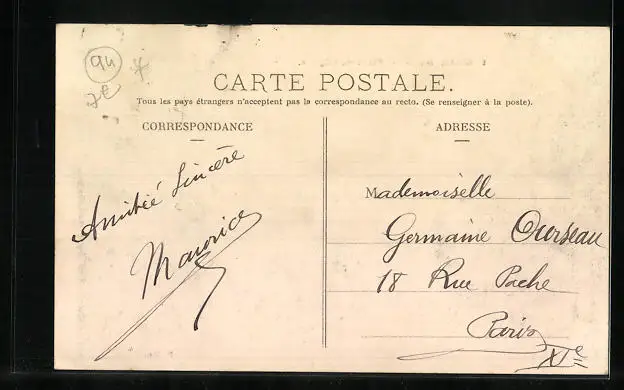 94
7€
CARTE POSTALE.
Tous les pays étrangers n'acceptent pas la correspondance au recto. (Se renseigner à la poste).
CORRESPONDANCE
Amitié Sincère
Maurice
ADRESSE
Mademoiselle
Germaine Ourseau
18 Rue Pache
Paris
XIe